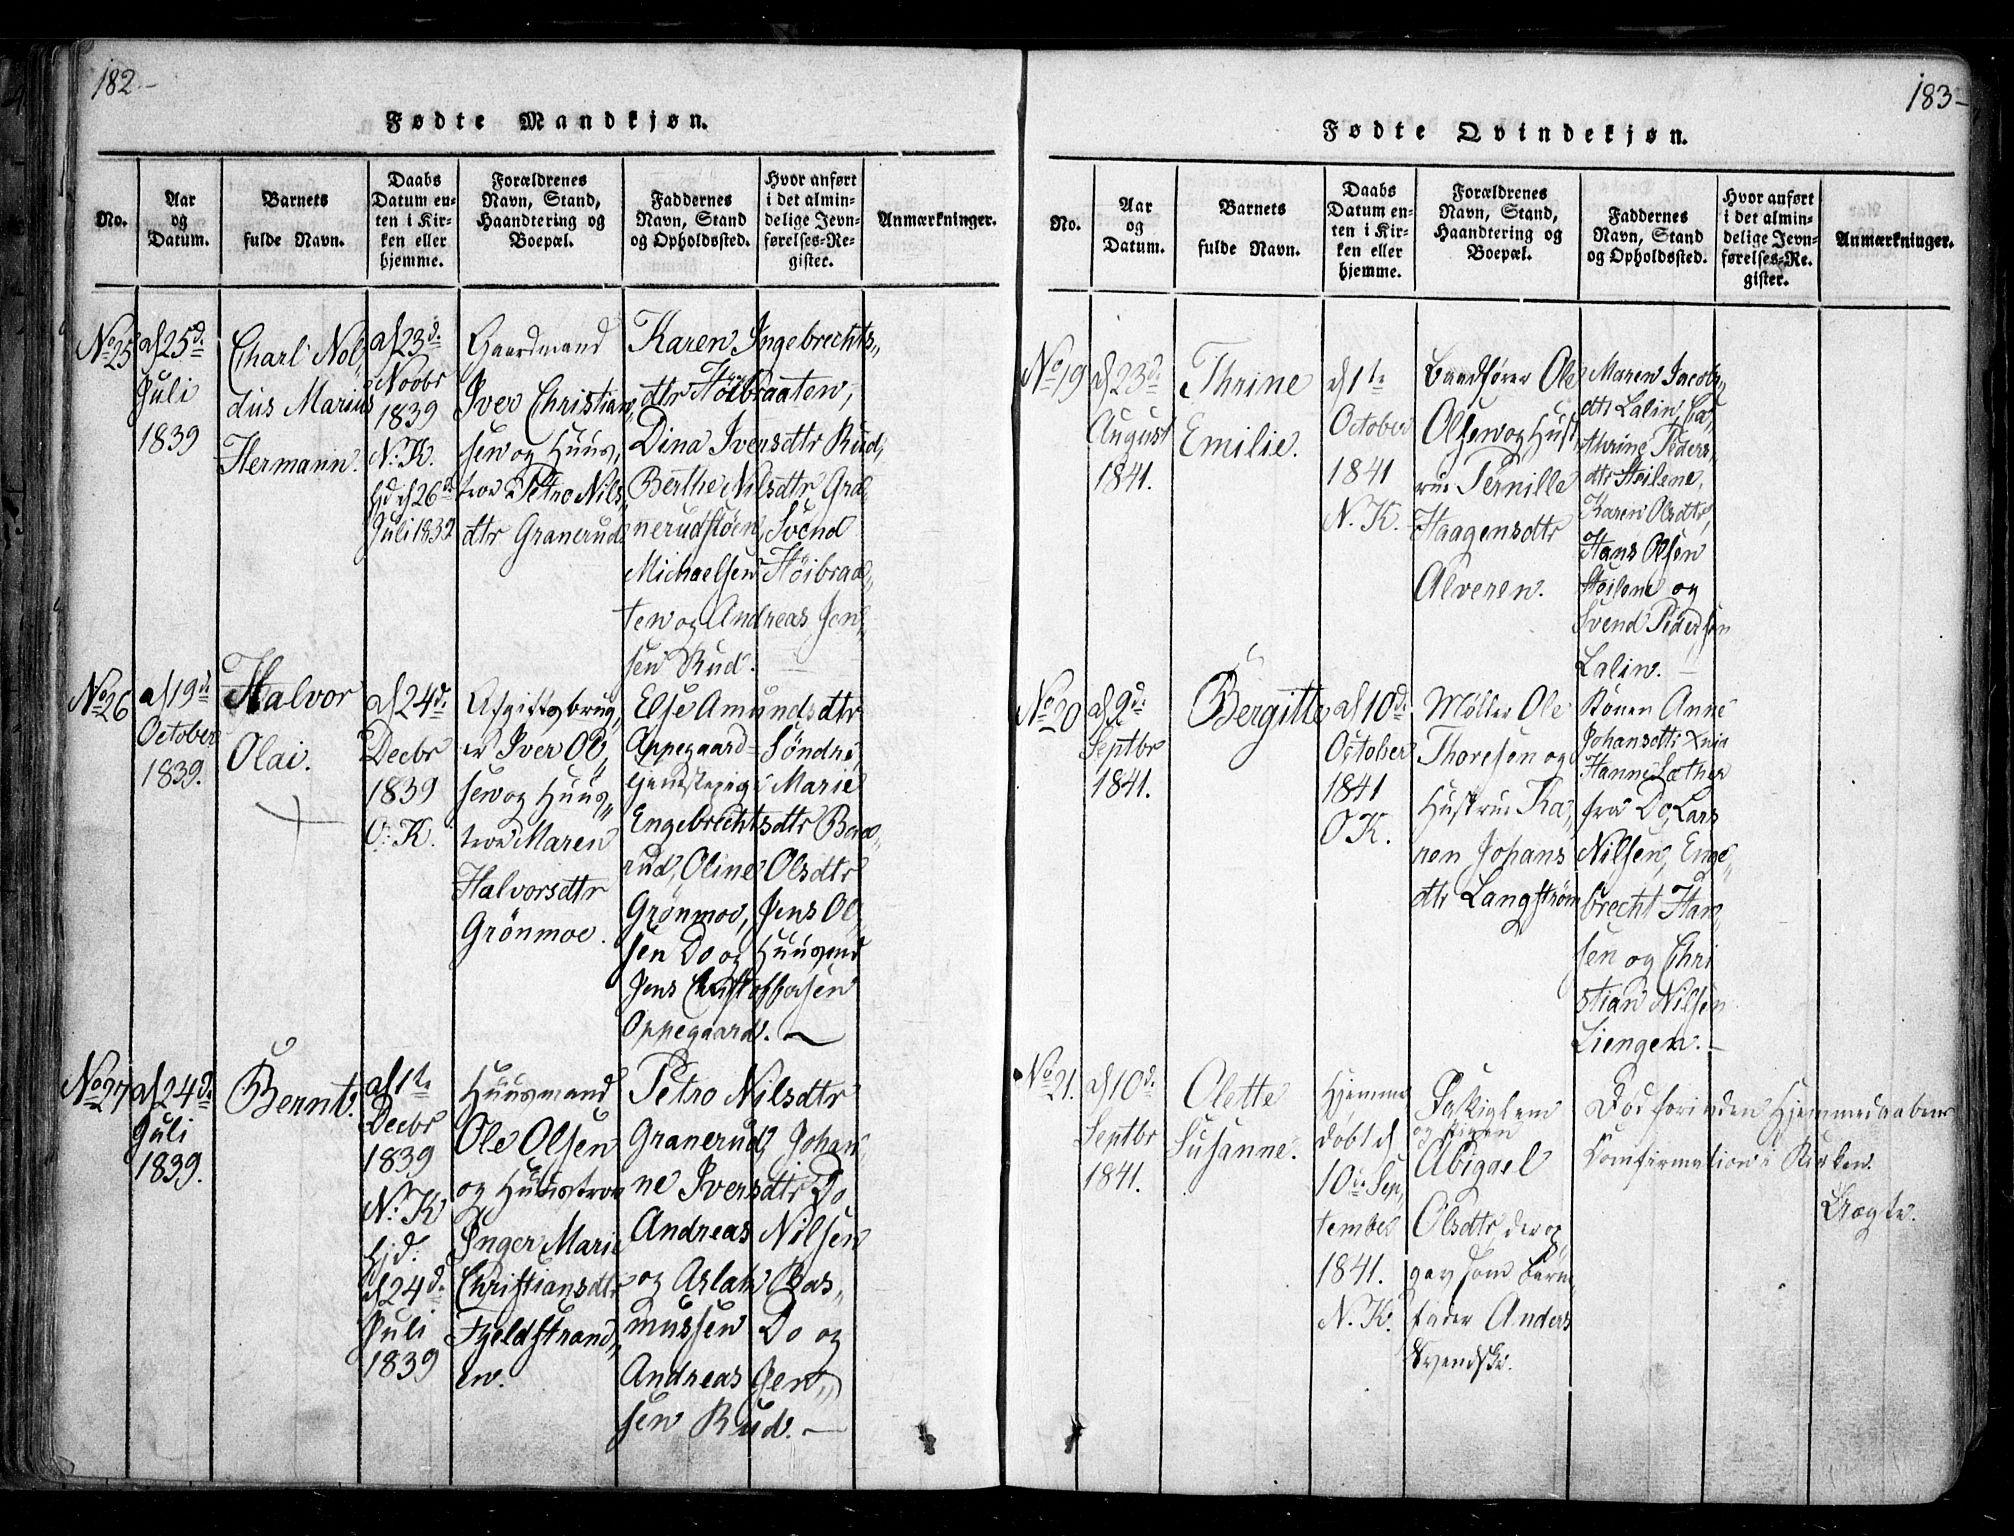 182-
Fødte Mandkjøn.
No.
Aar
og
Datum.
Barnets
fulde Navn.
Daabs
Datum en-
ten i Kir-
ken eller
hjemme.
Forældrenes
Navn, Stand,
Haandtering og
Boepæl.
Faddernes
Navn, Stand
og Opholdssted.
Hvor anført
i det almin-
delige Jevn-
førelses-Re-
gister.
Anmærkninger.
No 25
d 25d
Juli
1839
Charl Nol-
dus Marius
Hermann.
d 23d.
Novbr
1839
N. K.
hjd d 26d
Juli 1839
Gaardmand
Iver Christian,
sen og Huus,
troe Petro Nils,
dtr Granerud
Karen Ingebrechts,,
dtr Høibraaten,
Dina Iversdtr Rud,
Berthe Nilsdtr Gra,
nerudstøen, Svend
Michaelsen Høibraa,,
ten og Andreas Jen,,
sen Rud.
No 26
d 19d.
October
1839.
Halvor
Olai.
d 24d.
Decbr
1839
O. K.
Afgiftsbrug,
er Iver Ol,
sen og Huus,,
troe Maren
Halvorsdtr
Grønmoe.
Else Amundsdtr
Oppegaard Søndre,
Marie
Engebrechtsdtr
rud, Oline Olsdtr
Grønmoe, Jens Ol,
sen Do og Huusmd
Jens Christoffersen
Oppegaard. —
No 27
d 24d.
Juli
1839.
Bernt.
d 1te
Decbr
1839
N. K
hjd.
d 24d.
Juli
1839
Huusmand
Ole Olsen
og Huustroe
Inger Marie
Christiansdtr
Fjeldstrand,,
en.
Petro Nilsdtr
Granerud, Johan
ne Iversdtr Do
Andreas Nilsen
og Aslak Ras,,
mussen Do og
Andreas Jen,,
sen Rud. —
183-
Fødte Qvindekjøn.
No.
Aar
og
Datum.
Barnets
fulde Navn.
Daabs
Datum en-
ten i Kir-
ken eller
hjemme.
Forældrenes
Navn, Stand,
Haandtering og
Boepæl.
Faddernes
Navn, Stand
og Opholdssted.
Hvor anført
i det almin-
delige Jevn-
førelses-Re-
gister.
Anmærkninger.
No 19
d 23d.
August
1841.
Thrine
Emilie.
d 1te
October
1841
N. K.
Baadfører Ole
Olsen og Hust
rue Pernille
Haagensdtr
Alveren.
Maren Jacobs,
dtr Lalin, Ca,
thrine Peders,
dtr Steilene,
Karen Olsdtr,
Hans Olsen
Steilene og
Svend Pedersen
Lalin. —
No 20
d 9d.
Septbr
1841.
Bergitte
d 10d.
October
1841
O K.
Møller Ole
Thoresen og
Hustrue Ka,
ren Johans
dtr Langstrøm
Konen Anne
Johansdtr
Hanne
fra Do, Lars
Nilsen, Enge,
brecht Han
sen og Chri
stian Nilsen
Liengen. —
No 21.
d 10d.
Septbr
1841.
Olette
Susanne.
Hjemme
døbt d
10de Sep,
tember
1841.
N. K.
og Pigen
Abigael
Olsdtr, der op,
gav som Barne
fader Anders
Svendske.
Død forinden Hjemmedaabens
Comfirmation i Kirken.
Uægte.